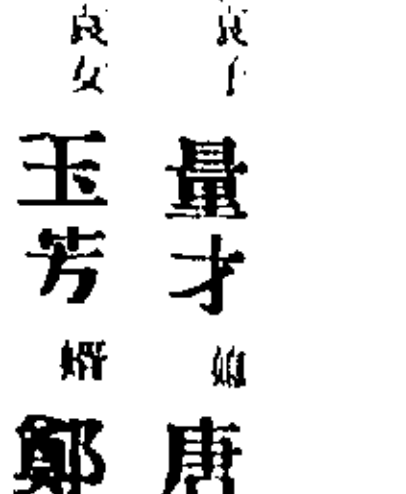 哀子量才媳唐
哀女玉芳婿鄭